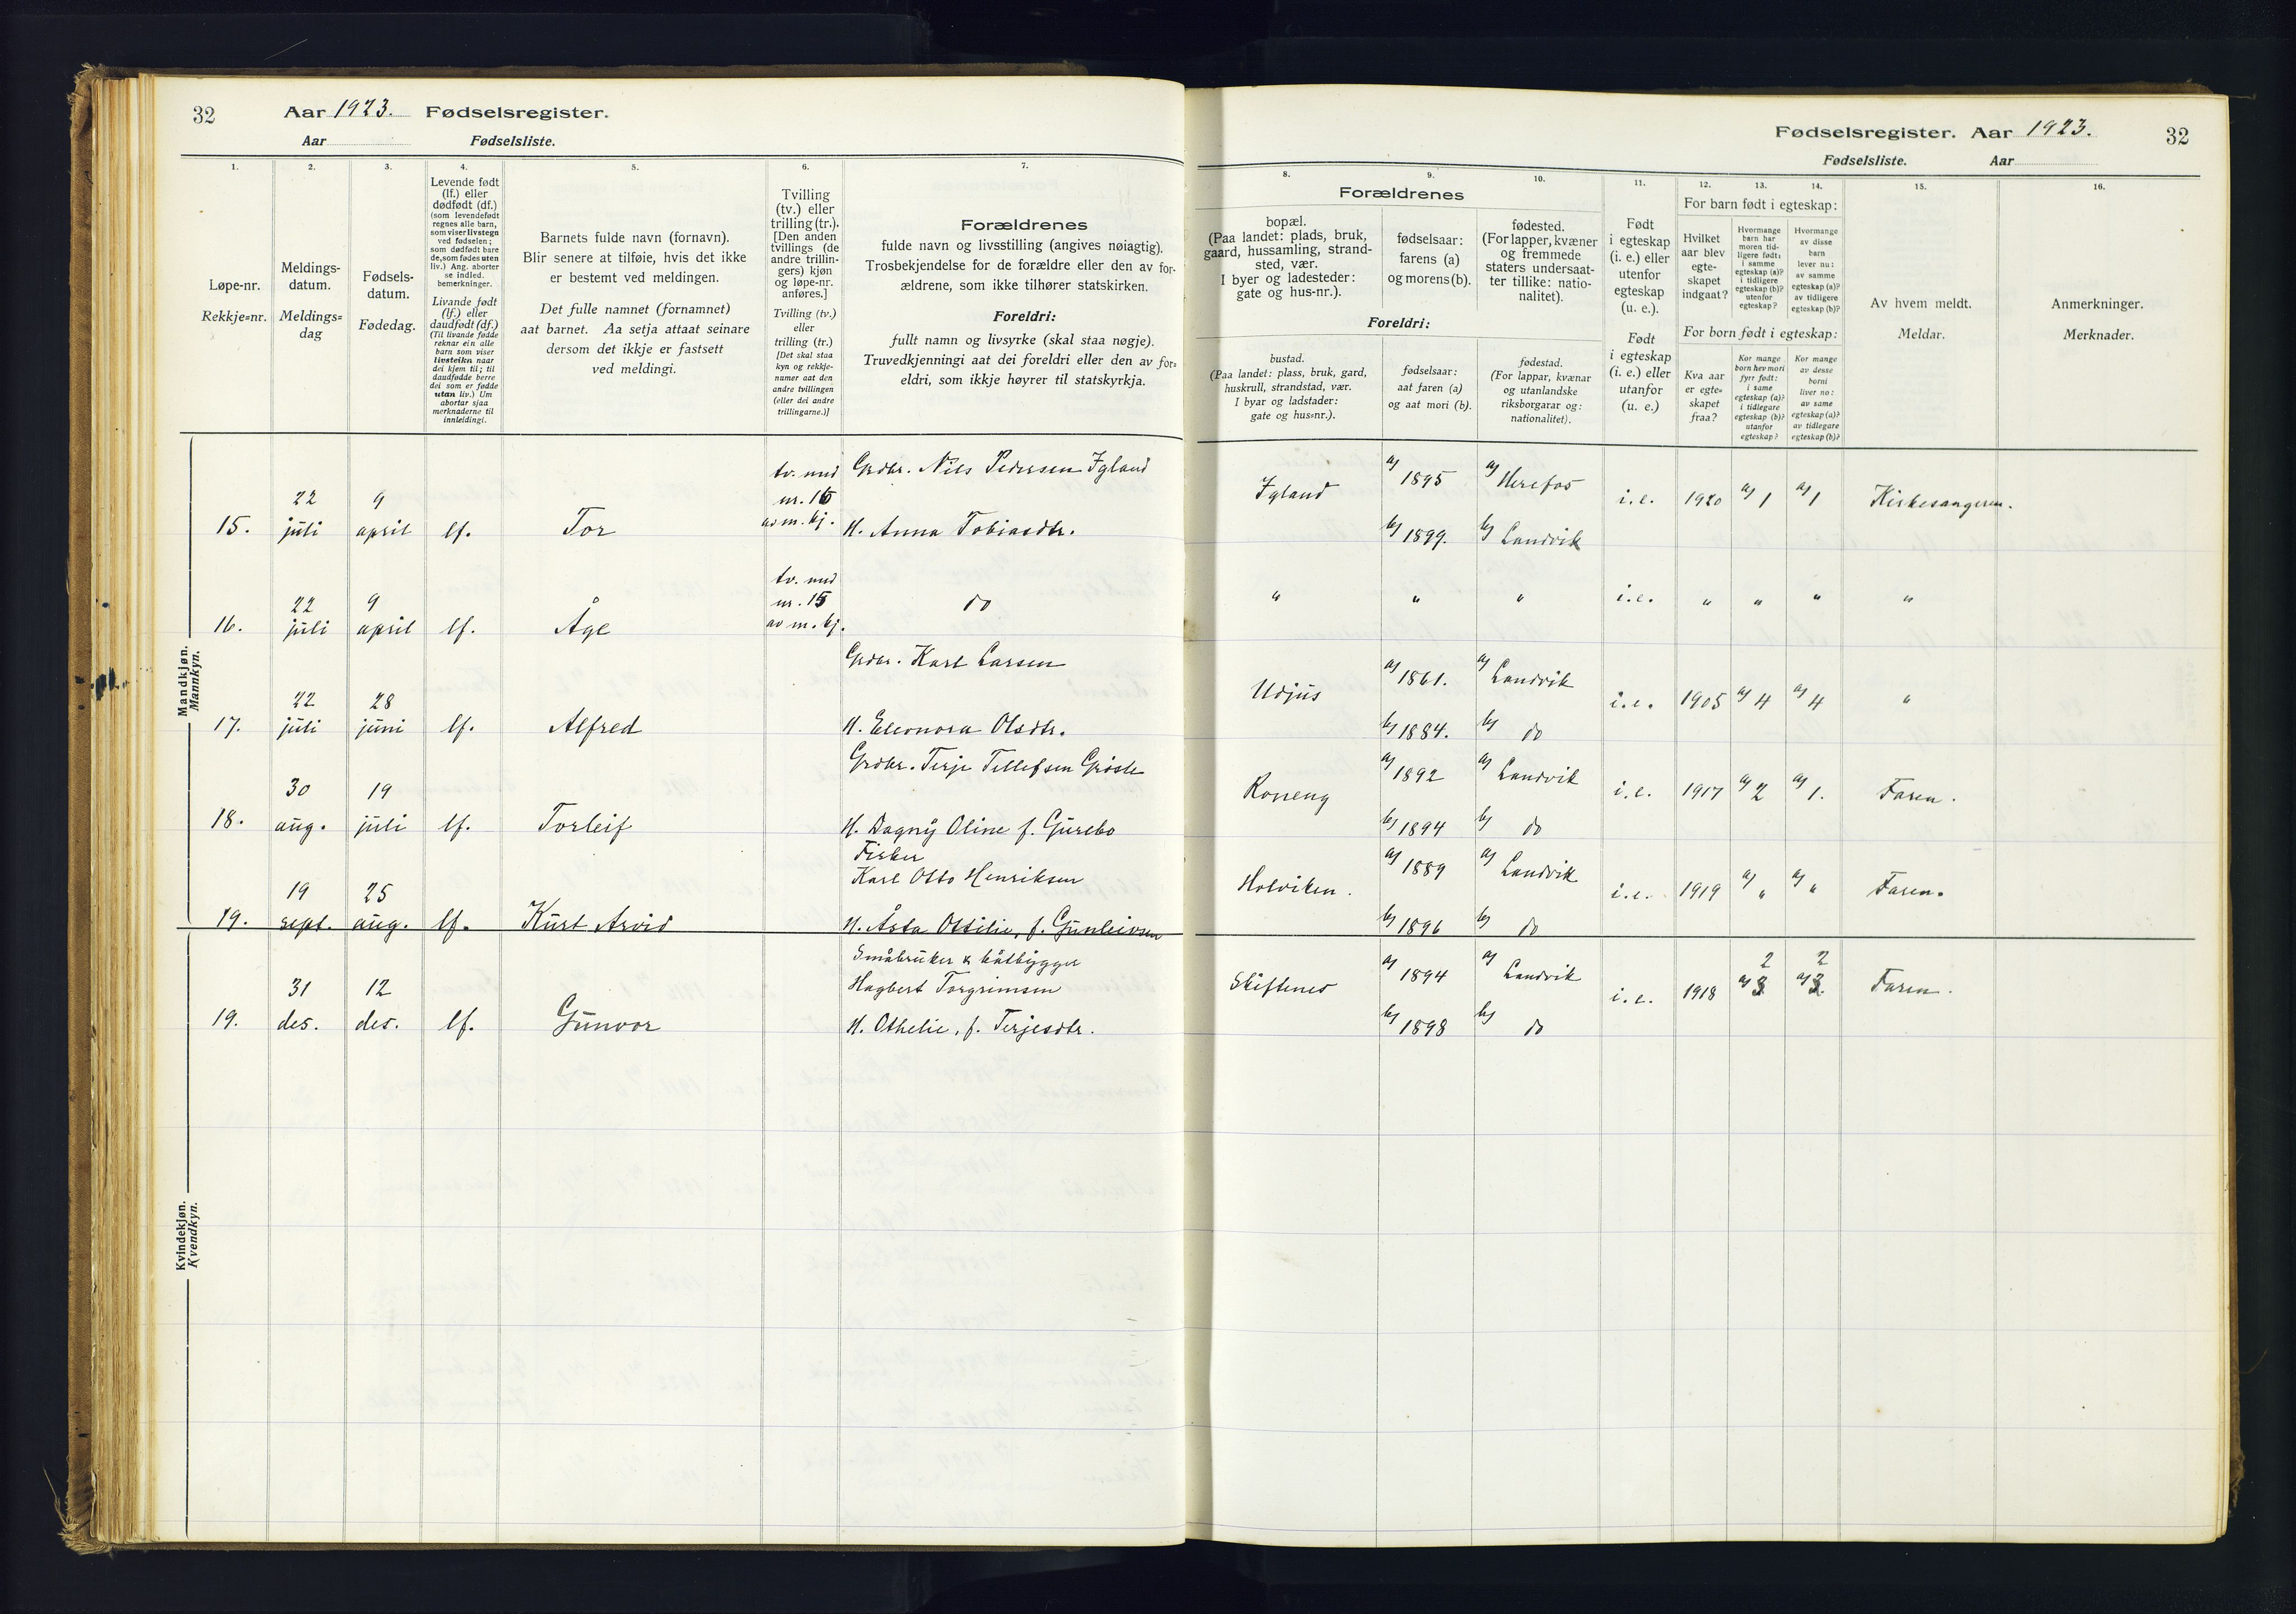 32 Aar 1923. Fødselsregister.
Aar Fødselsliste.
1. 2. 3. 4. 5. 6. 7.
Løpe-nr.
Rekkje=nr.
Meldings-
datum.
Meldings=
dag
Fødsels-
datum.
Fødedag.
Levende født
(lf.) eller
dødfødt (df.)
(som levendefødt
regnes alle barn,
som viser livstegn
ved fødselen;
som dødfødt bare
de, som fødes uten
liv.) Ang. aborter
se indled.
bemerkninger.
Livande født
(lf.) eller
daudfødt (df.)
(Til livande fødde
reknar ein alle
barn som viser
livsteikn naar
dei kjem til; til
daudfødde berre
dei som er fødde
utan liv.) Um
abortar sjaa
merknaderne til
innleidingi.
Barnets fulde navn (fornavn).
Blir senere at tilføie, hvis det ikke
er bestemt ved meldingen.
Det fulle namnet (fornamnet)
aat barnet. Aa setja attaat seinare
dersom det ikkje er fastsett
ved meldingi.
Tvilling
(tv.) eller
trilling (tr.).
[Den anden
tvillings (de
andre trillin-
gers) kjøn
og løpe-nr.
anføres.]
Tvilling (tv.)
eller
trilling (tr.)
[Det skal staa
kyn og rekkje-
numer aat den
andre tvillingen
(eller dei andre
trillingarne.)]
Forældrenes
fulde navn og livsstilling (angives nøiagtig).
Trosbekjendelse for de forældre eller den av for-
ældrene, som ikke tilhører statskirken.
Foreldri:
fullt namn og livsyrke (skal staa nøgje).
Truvedkjenningi aat dei foreldri eller den av for=
eldri, som ikkje høyrer til statskyrkja.
Mandkjøn.
Mannkyn.
15. 22 juli 9 april lf. Tor tv. med nr. 16 av m. kj. Grdbr. Nils Pedersen Igland
H. Anna Tobiasdtr.
16. 22 juli 9 april lf. Åge tv. med nr. 15 av m. kj. do
17. 22 juli 28 juni lf. Alfred Grdbr. Karl Larsen
H. Eleonora Olsdtr.
18. 30 aug. 19 juli lf. Torleif Grdbr. Terje Tellefsen
H. Dagny Oline f. Gurebo
19. 19 sept. 25 aug. lf. Kurt Arvid Fisker
Karl Otto Henriksen
H. Åsta Ottilie, f. Gunleivsen
Kvindekjøn.
Kvendkyn.
19. 31 des. 12 des. lf. Gunvor Småbruker & båtbygger
Hagbert Torgrimsen
H. Othelie, f. Terjesdtr.
Fødselsregister. Aar 1923. 32
Fødselsliste. Aar
8. 9. 10. 11. 12. 13. 14. 15. 16.
Forældrenes
bopæl.
(Paa landet: plads, bruk,
gaard, hussamling, strand-
sted, vær.
I byer og ladesteder:
gate og hus-nr.).
fødselsaar:
farens (a)
og morens (b).
fødested.
(For lapper, kvæner
og fremmede
staters undersaat-
ter tillike: natio-
nalitet).
Foreldri:
bustad.
(Paa landet: plass, bruk, gard,
huskrull, strandstad, vær.
I byar og ladstader:
gate og hus=nr.).
fødselsaar:
aat faren (a)
og aat mori (b).
fødestad.
(For lappar, kvænar
og utanlandske
riksborgarar og:
nationalitet).
Født
i egteskap
(i. e.) eller
utenfor
egteskap
(u. e.).
Født
i egteskap
(i. e.) eller
utanfor
(u. e.)
For barn født i egteskap:
Hvilket
aar blev
egte-
skapet
indgaat?
Hvormange
barn har
moren tid-
ligere født:
i samme
egteskap (a)?
i tidligere
egteskap (b)?
utenfor
egteskap?
Hvormange
av disse
barn
lever nu:
av samme
egteskap (a)?
av tidligere
egteskap (b)?
For born født i egteskap:
Kva aar
er egte-
skapet
fraa?
Kor mange
born hev mori
fyrr født:
i same
egteskap (a)?
i tidlegare
egteskap (b)?
utanfor
egteskap?
Kor mange
av desse
borni
liver no:
av same
egteskap (a)?
av tidlegare
egteskap (b)?
Av hvem meldt.
Meldar.
Anmerkninger.
Merknader.
Igland a) 1895 a) Herefos i.e. 1920 a) 1 a) 1 Kirkesangeren.
b) 1899. b) Landvik
" " " i.e. " " " "
Udjus a) 1861. a) Landvik i.e. 1905 a) 4 a) 4 "
b) 1884. b) do
Roneng a) 1892 a) Landvik i.e. 1917 a) 2 a) 1. Faren.
b) 1894 b) do
Holviken. a) 1889 a) Landvik i.e. 1919 a) " a) " Faren.
b) 1896 b) do
Skiftenes a) 1894 a) Landvik i.e. 1918 a) 3 2 a) 3 2 Faren.
b) 1898 b) do